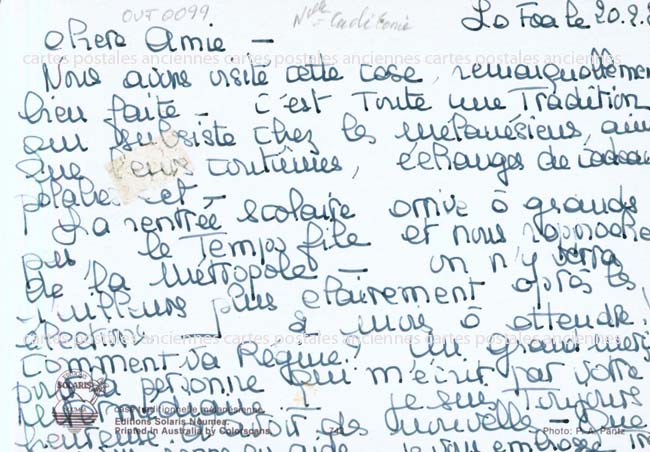 OVT 0099
Nlle - Calédonie
La Foa le 20.2.
chere Amie -
Nous avons visité cette case, remarquablemen
bien faite - c'est Toute une Tradition
qui subsiste chez les mélanésiens, ain
que leurs coutumes, échanges de cadeau
palabres et -
La rentrée scolaire arrive à grands
pas le Temps file et nous rapproche
de la Métropole - on n'y verra
d'ailleurs plus clairement après les
élections - à nous d'attendre.
Comment va Régine? un grand merci
pour la personne qui m'écrit par votre
je suis Toujours
heureuse de nouvelle - Que
je vous embrasse
cartes postales anciennes cartes postales anciennes cartes postales anciennes
cartes postales anciennes cartes postales anciennes cartes postales anciennes
cartes postales anciennes cartes postales anciennes cartes postales anciennes
SOLARIS
case traditionnelle mélanésienne.
Editions Solaris Nouméa.
Printed in Australia by Colorscans.
Photo: P. A. Pantz